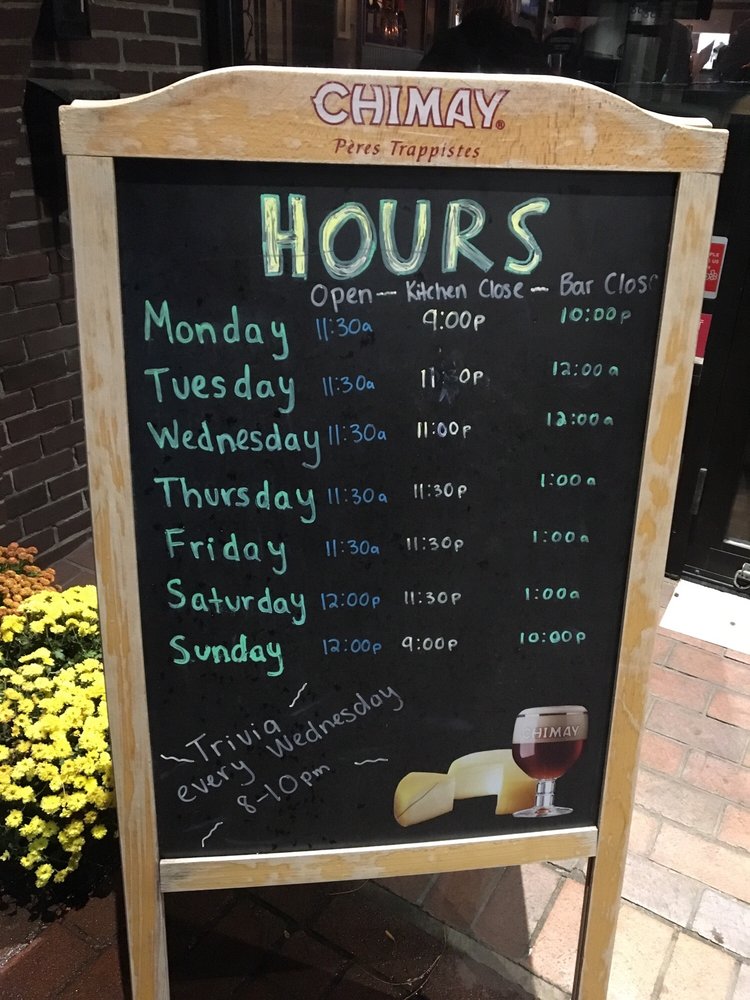 CHIMAY®
Pères Trappistes
HOURS
Open — Kitchen Close — Bar Close
Monday 11:30a 9:00p 10:00p
Tuesday 11:30a 11:30p 12:00a
Wednesday 11:30a 11:00p 12:00a
Thursday 11:30a 11:30p 1:00a
Friday 11:30a 11:30p 1:00a
Saturday 12:00p 11:30p 1:00a
Sunday 12:00p 9:00p 10:00p
Trivia
every Wednesday
8-10pm
CHIMAY